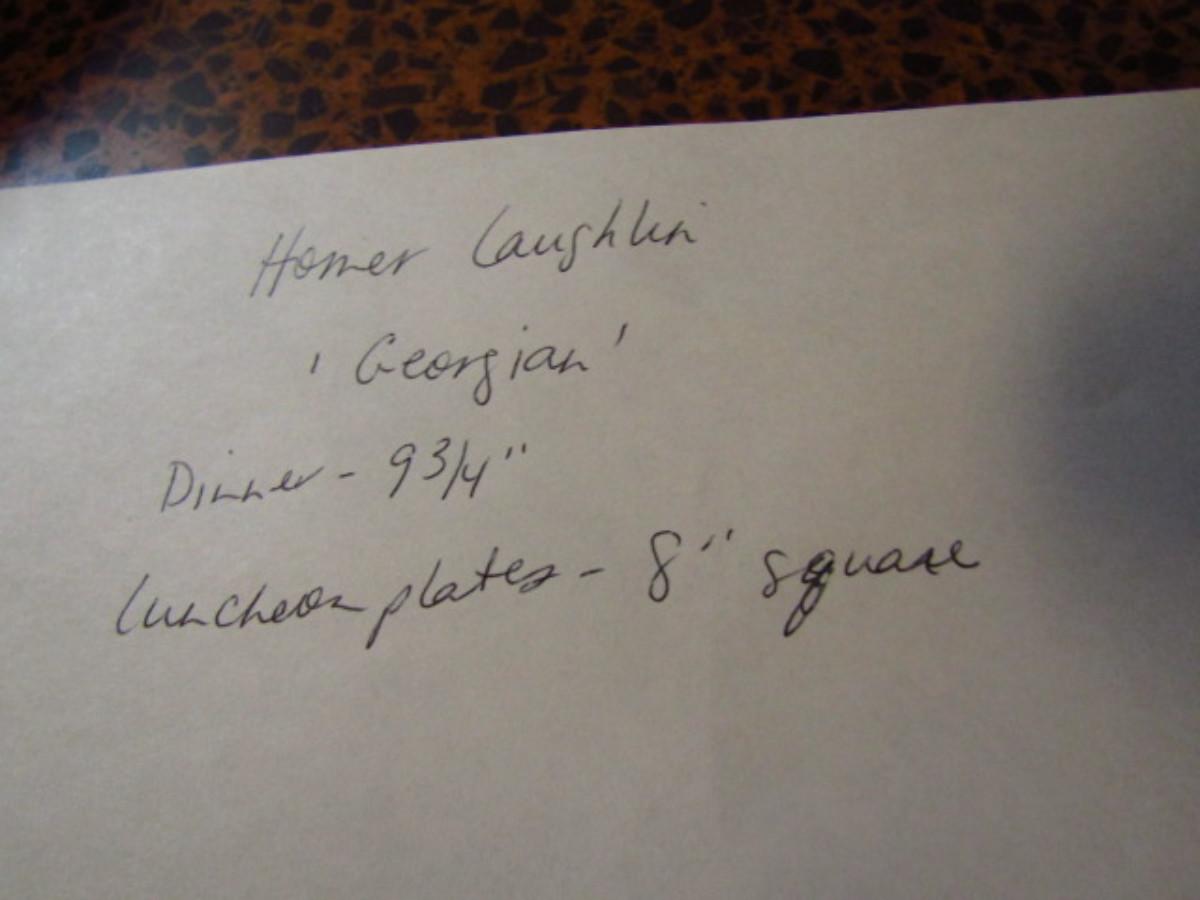 Homer Laughlin
'Georgian'
Dinner - 9 3/4"
Luncheon plates - 8" square